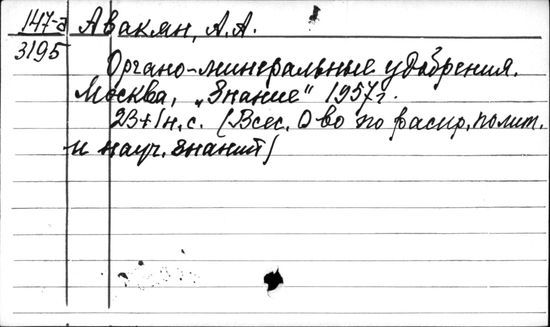 147-д Авакян, А.А.
3195
Органо-минеральные удобрения.
Москва, „Знание" 1957г.
23+1н.с. (Всес. О во по распр. полит.
и науч. знаний)